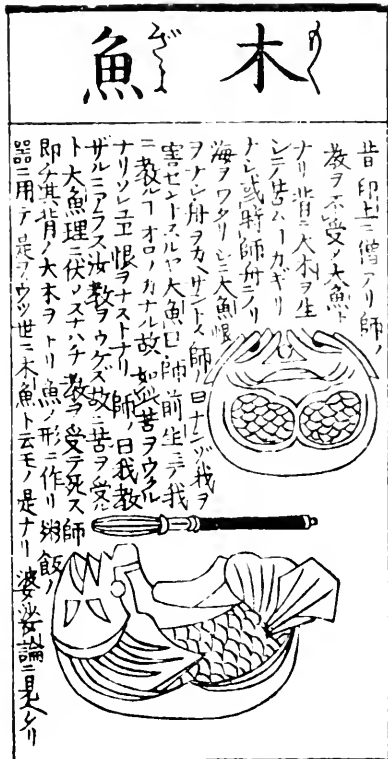 木魚
もくぎよ
昔印土ニ僧アリ師ノ
教ヲ不受𬼀大魚ト
ナリ背ニ大木ヲ生
シテ苦ムヿカギリ
ナシ或時師舟ニノリ
海ヲワタリシニ大魚恨
ヲナシ舟ヲカヘサントス師ノ曰ナンゾ我ヲ
害セントスルヤ大魚曰師前生ニテ我
ニ教ルヿオロソカナル故ニ如此苦ヲウクル
ナリソレユヱ恨ヲナストナリ師ノ曰我教
ザルニアラズ汝教ヲウケズ故ニ苦ヲ受ル
ト大魚理ニ伏𬼀スナハチ教ヲ受テ死ス師
即チ其背ノ大木ヲトリ魚ノ形ニ作リ粥飯ノ
器ニ用テ是ヲウツ世ニ木魚ト云モノ是ナリ 婆沙論ニ見ヘタリ